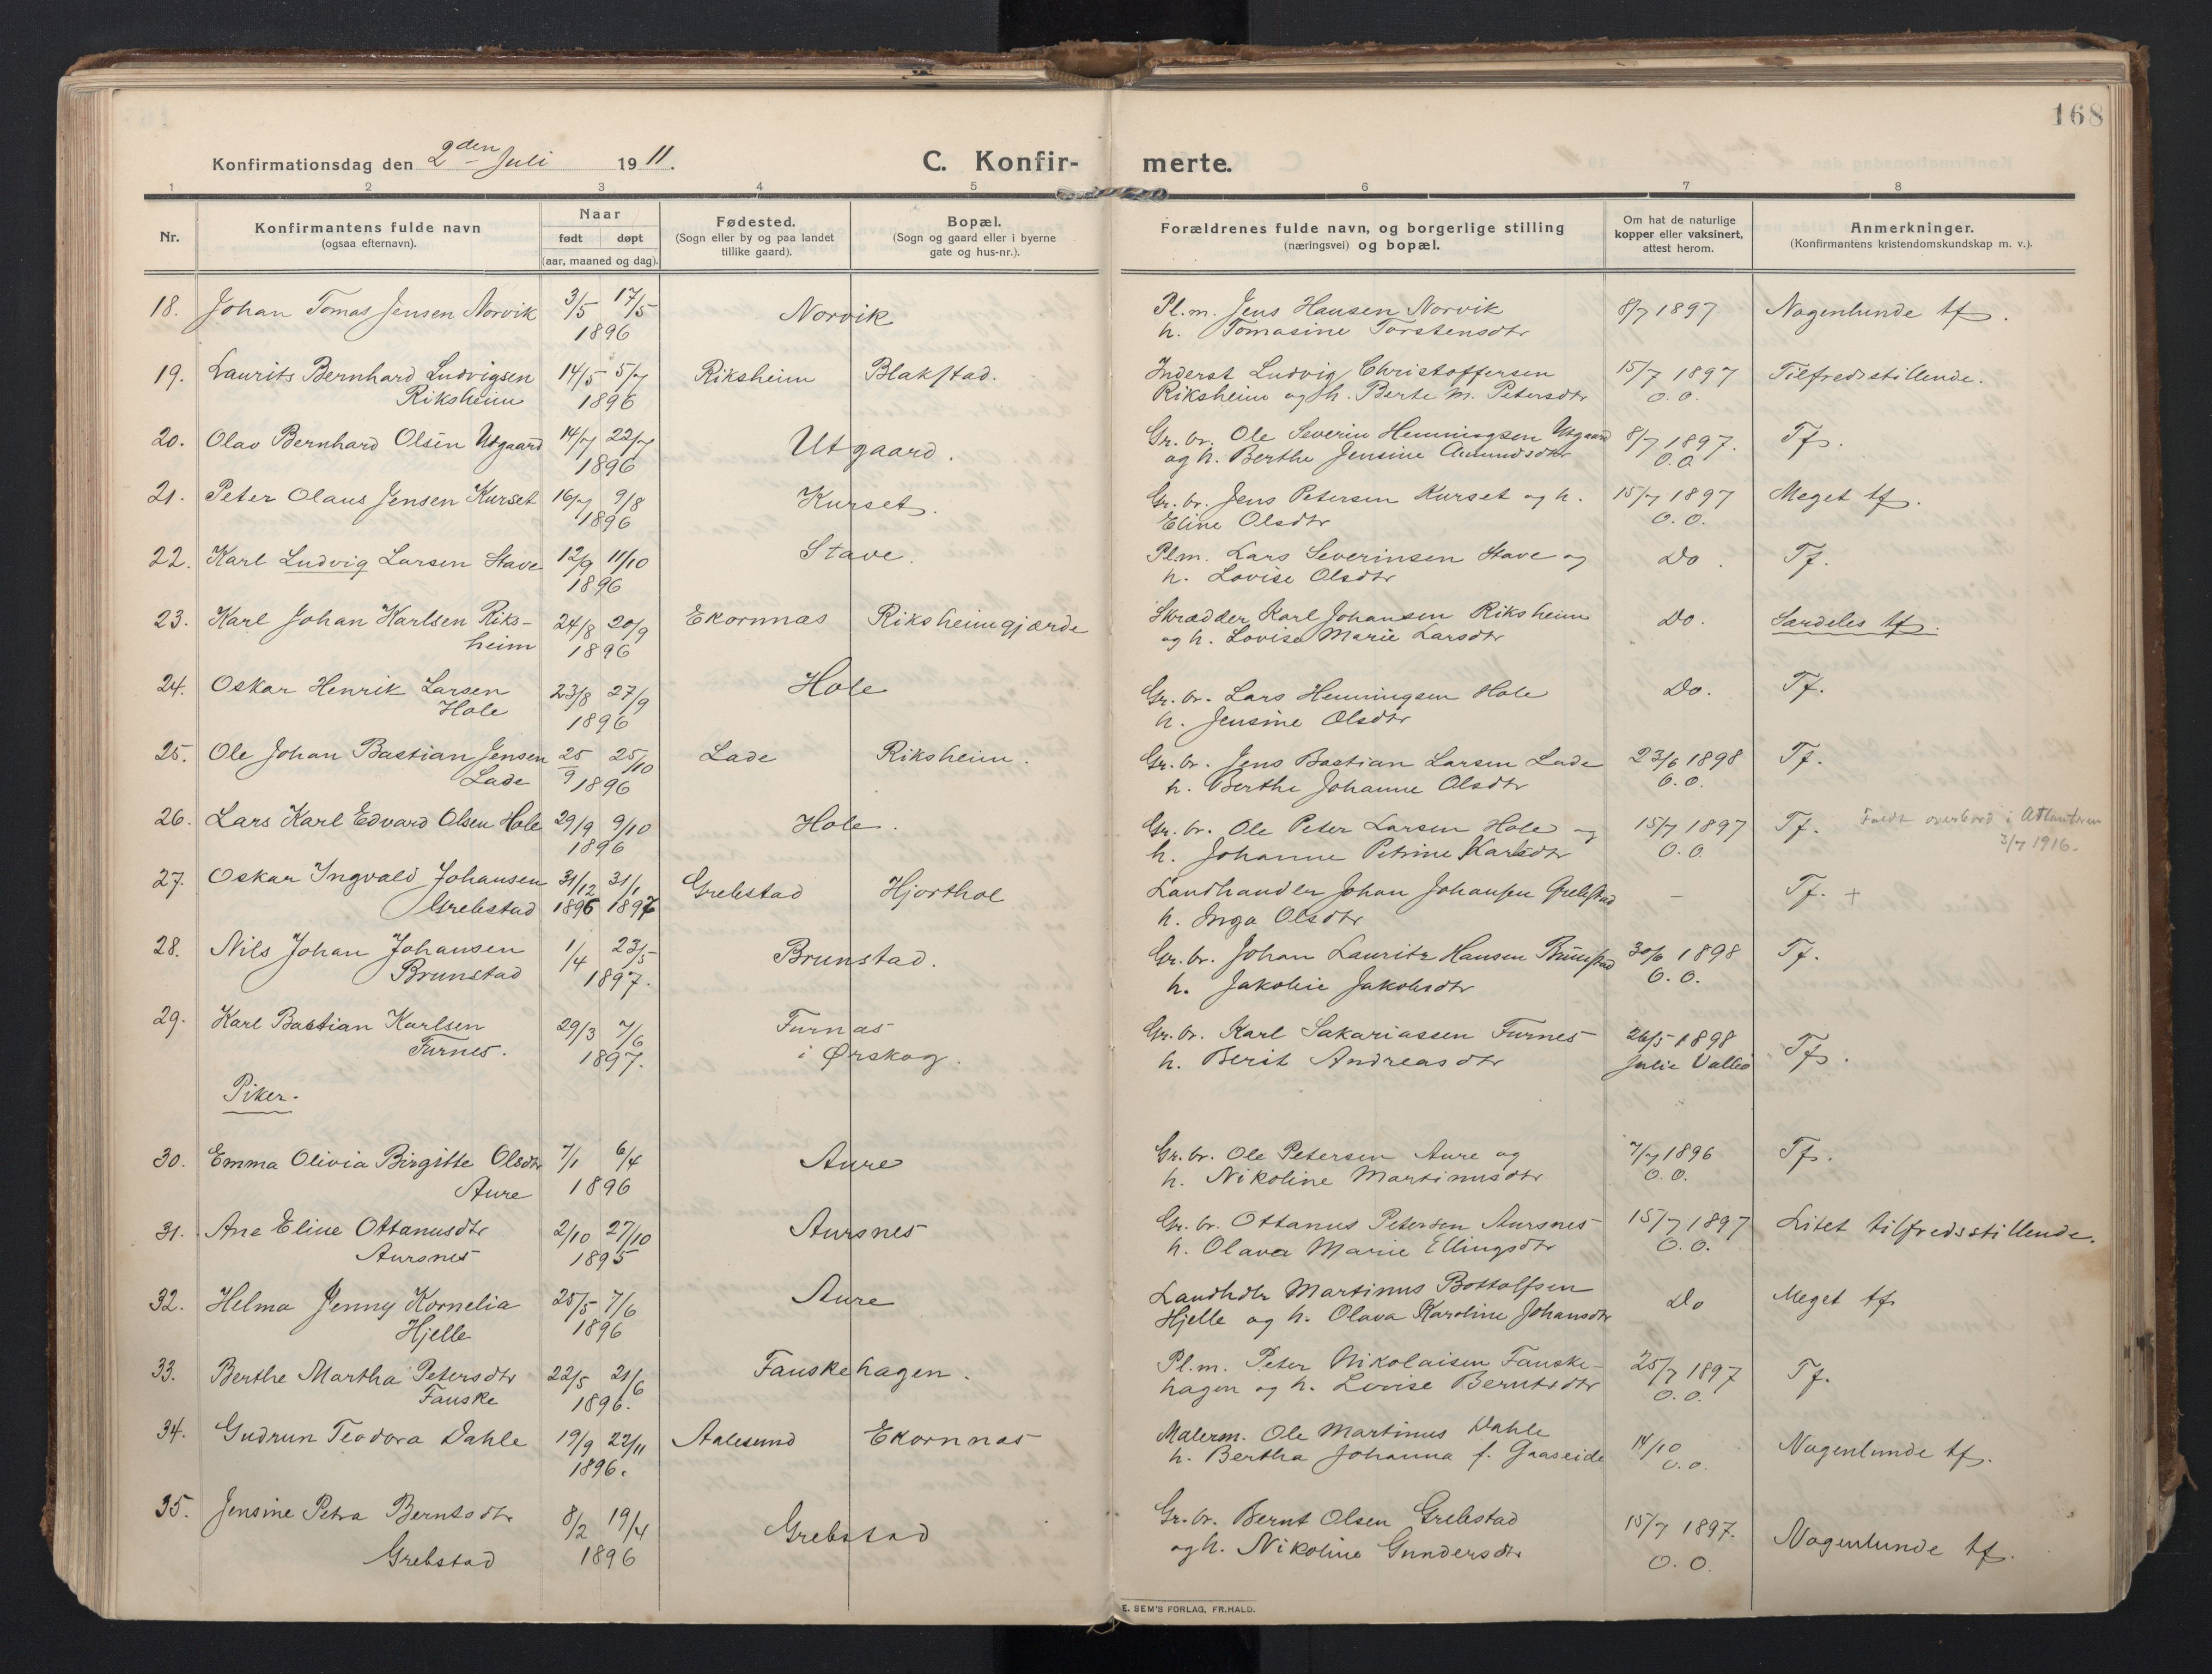 168
Konfirmationsdag den 2den Juli 1911.
C. Konfir- merte.
1 2 3 4 5 6 7 8
Nr.
Konfirmantens fulde navn
(ogsaa efternavn).
Naar
født døpt
(aar, maaned og dag).
Fødested.
(Sogn eller by og paa landet
tillike gaard).
Bopæl.
(Sogn og gaard eller i byerne
gate og hus-nr.).
Forældrenes fulde navn, og borgerlige stilling
(næringsvei) og bopæl.
Om hat de naturlige
kopper eller vaksinert,
attest herom.
Anmerkninger.
(Konfirmantens kristendomskundskap m. v.).
18. Johan Tomas Jensen Norvik 3/5 17/5 Norvik Pl.m. Jens Hansen Norvik 8/7 1897 Nogenlunde tf.
1896 h. Tomasine Torstensdtr
19. Laurits Bernhard Ludvigsen 14/5 5/7 Riksheim Blakstad. Inderst Ludvig Christoffersen 15/7 1897 Tilfredsstillende.
Riksheim 1896 Riksheim og h. Berte M. Petersdtr O. O.
20. Olav Bernhard Olsen Utgaard 14/7 22/7 Utgaard. Gr. br. Ole Severin Henningsen Utgaard 8/7 1897. Tf.
1896 og h. Berthe Jensine Amundsdtr O. O
21. Peter Olaus Jensen Kurset 16/7 9/8 Kurset. Gr. br. Jens Petersen Kurset og h. 15/7 1897 Meget tf.
1896 Eline Olsdtr O. O.
22. Karl Ludvig Larsen Stave 12/9 11/10 Stave. Pl.m. Lars Severinsen Stave og Do. Tf.
1896 h. Lovise Olsdtr
23. Karl Johan Karlsen Riks- 24/8 20/9 Ekornnas Riksheimgjærde Skrædder Karl Johansen Riksheim Do. Særdeles tf.
heim 1896 og h. Lovise Marie Larsdtr
24. Oskar Henrik Larsen 23/8 27/9 Hole Gr. br. Lars Henningsen Hole Do. Tf.
Hole 1896 h. Jensine Olsdtr
25. Ole Johan Bastian Jensen 25/9 25/10 Lade Riksheim. Gr. br. Jens Bastian Larsen Lade 23/6 1898 Tf.
Lade 1896 h. Berthe Johanne Olsdtr O. O.
26. Lars Karl Edvard Olsen Hole 29/9 9/10 Hole. Gr. br. Ole Peter Larsen Hole og 15/7 1897 Tf. Faldt overbord i Atlanteren
1896 h. Johanne Petrine Karlsdtr O. O. 3/7 1916.
27. Oskar Ingvald Johansen 31/12 31/1 Grebstad Hjorthol Landhandler Johan Johansen Grebstad - Tf. +
Grebstad 1896 1897 h. Inga Olsdtr
28. Nils Johan Johansen 1/4 23/5 Brunstad. Gr. br. Johan Lauritz Hansen Brunstad 30/6 1898 Tf.
Brunstad 1897. h. Jakobie Jakobsdtr O. O.
29. Karl Bastian Karlsen 29/3 7/6 Furnas Gr. br. Karl Sakariassen Furnes 26/5 1898 Tf.
Furnes. 1897. i Ørskog. h. Berit Andreasdtr Julie Vallø
Piker.
30. Emma Olivia Birgitte Olsdtr 7/1 6/4 Aure Gr. br. Ole Petersen Aure og 7/7 1896 Tf.
Aure 1896 h. Nikoline Martinusdtr O. O.
31. Ane Eline Ottanusdtr 2/10 27/10 Aursnes Gr. br. Ottanus Petersen Aursnes 15/7 1897 Litet tilfredsstillende.
Aursnes 1895 h. Olava Marie Ellingsdtr O. O.
32. Helma Jenny Kornelia 25/5 7/6 Aure Landhdlr Martinus Bottolfsen Do Meget tf
Hjelle 1896 Hjelle og h. Olava Karoline Johansdtr
33. Berthe Martha Petersdtr 22/5 21/6 Fauskehagen. Pl.m. Peter Nikolaisen Fauske- 25/7 1897 Tf.
Fauske 1896. hagen og h. Lovise Berntsdtr O. O.
34. Gudrun Teodora Dahle 19/9 22/11 Aalesund Ekornnas Malerm. Ole Martinus Dahle 14/10 Nogenlunde tf.
1896. h. Bertha Johanna f. Gaaseide O. O.
35. Jensine Petra Berntsdtr 8/2 19/4 Grebstad Gr. br. Bernt Olsen Grebstad 15/7 1897. Nogenlunde tf.
Grebstad 1896 og h. Nikoline Gundersdtr O. O.
E. SEM'S FORLAG, FR.HALD.